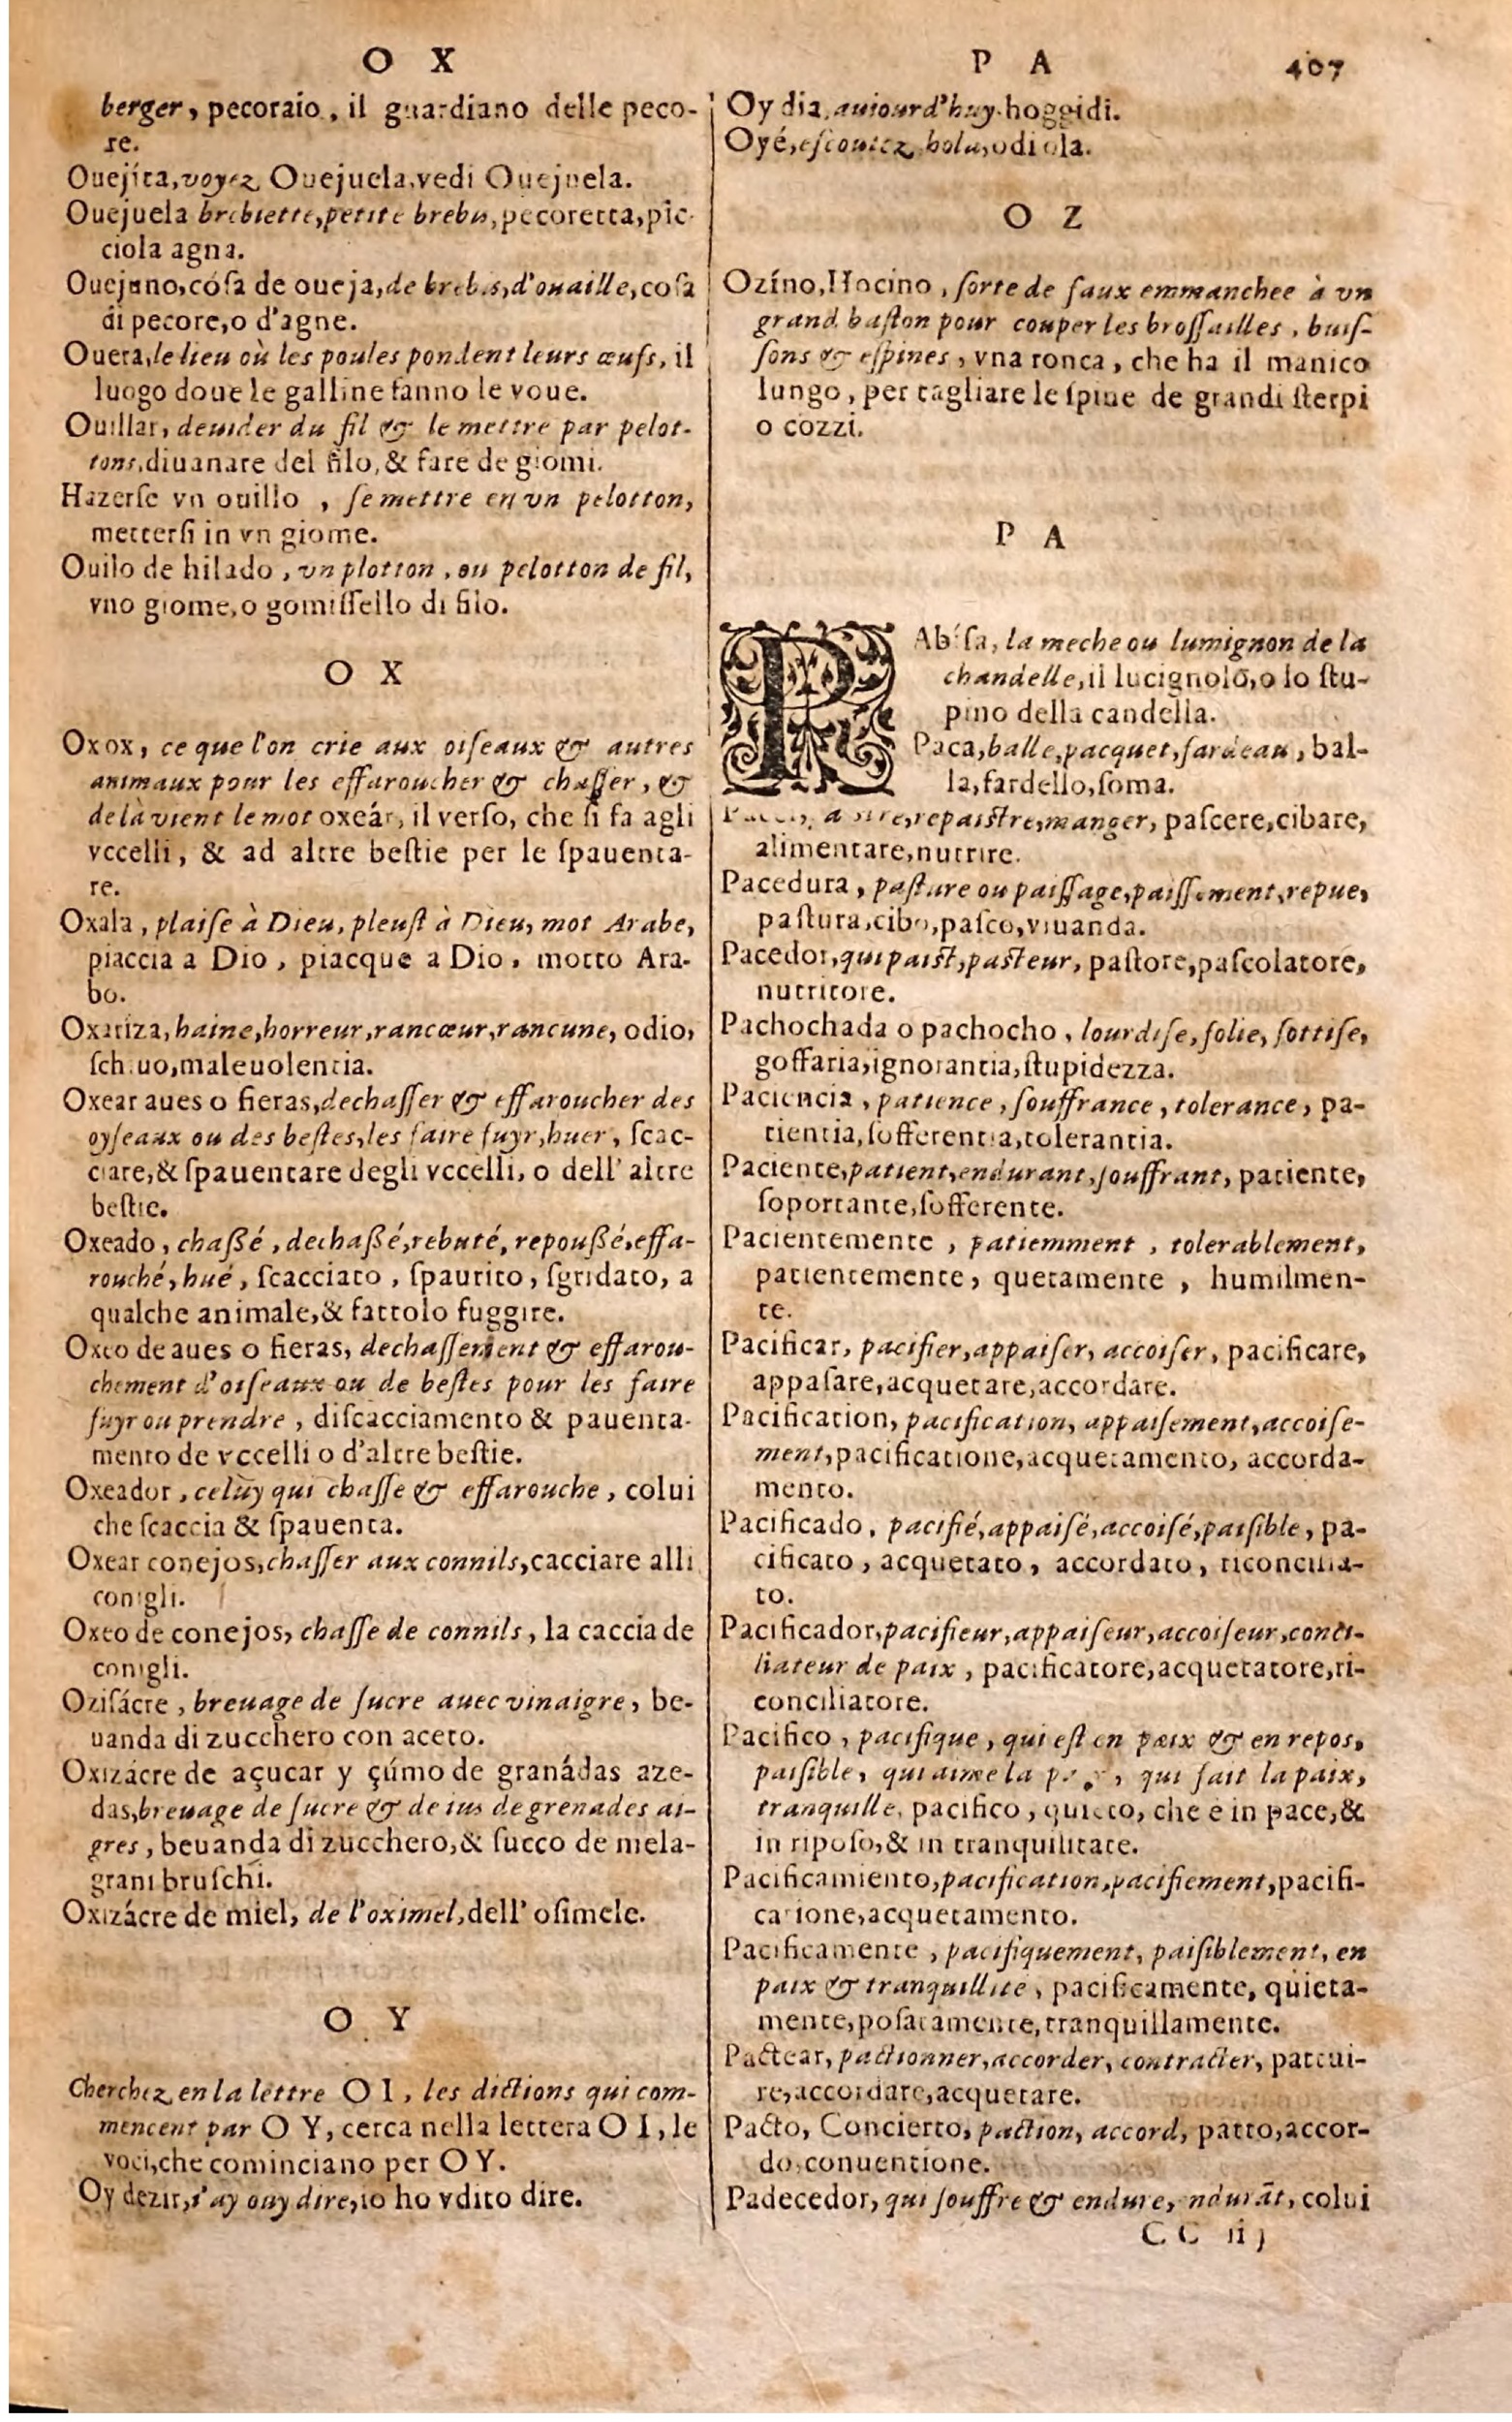 O X
berger, pecoraio, il guardiano delle peco-
re.
Ouejíta, voyez Ouejuela, vedi Ouejuela.
Ouejuela brebiette, petite brebis, pecoretta, pic-
ciola agna.
Ouejuno, cósa de oueja, de brebis, d'ouaille, cosa
di pecore, o d'agne.
Ouera, le lieu où les poules pondent leurs œufs, il
luogo doue le galline fanno le voue.
Ouillar, deuider du fil & le mettre par pelot-
tons, diuanare del filo, & fare de giomi.
Hazerse vn ouillo, se mettre en vn pelotton,
mettersi in vn giome.
Ouilo de hilado, vn plotton, ou pelotton de fil,
vno giome, o gomissello di filo.
O X
Oxox, ce que l'on crie aux oiseaux & autres
animaux pour les effaroucher & chasser, &
de là vient le mot oxeár, il verso, che si fa agli
vccelli, & ad altre bestie per le spauenta-
re.
Oxala, plaise à Dieu, pleust à Dieu, mot Arabe,
piaccia a Dio, piacque a Dio, motto Ara-
bo.
Oxariza, haine, horreur, rancœur, rancune, odio,
schiuo, maleuolentia.
Oxear aues o fieras, dechasser & effaroucher des
oyseaux ou des bestes, les faire fuyr, huer, scac-
ciare, & spauentare degli vccelli, o dell' altre
bestie.
Oxeado, chaßé, dechaßé, rebuté, repoußé, effa-
rouché, hué, scacciato, spaurito, sgridato, a
qualche animale, & fattolo fuggire.
Oxeo de aues o fieras, dechassement & effarou-
chement d'oiseaux ou de bestes pour les faire
fuyr ou prendre, discacciamento & pauenta-
mento de vccelli o d'altre bestie.
Oxeador, celuy qui chasse & effarouche, colui
che scaccia & spauenta.
Oxear conejos, chasser aux connils, cacciare alli
conigli.
Oxeo de conejos, chasse de connils, la caccia de
conigli.
Ozisácre, breuage de sucre auec vinaigre, be-
uanda di zucchero con aceto.
Oxizácre de açucar y çúmo de granádas aze-
das, breuage de sucre & de ius de grenades ai-
gres, beuanda di zucchero, & succo de mela-
grani bruschi.
Oxizácre de miel, de l'oximel, dell' osimele.
O Y
Cherchez en la lettre O I, les dictions qui com-
mencent par O Y, cerca nella lettera O I, le
voci, che cominciano per O Y.
Oy dezir, i'ay ouy dire, io ho vdito dire.
P A 407
Oy dia, auiourd'huy. hoggidi.
Oyé, escoutez, hola, odi ola.
O Z
Ozíno, Hocino, sorte de faux emmanchee à vn
grand baston pour couper les brossailles, buis-
sons & espines, vna ronca, che ha il manico
lungo, per tagliare le spine de grandi sterpi
o cozzi.
P A
PAbísa, la meche ou lumignon de la
chandelle, il lucignolo, o lo stu-
pino della candella.
Paca, balle, pacquet, fardeau, bal-
la, fardello, soma.
repaistre, manger, pascere, cibare,
alimentare, nutrire.
Pacedura, pasture ou paissage, paissement, repue,
pastura, cibo, pasco, viuanda.
Pacedor, qui paist, pasteur, pastore, pascolatore,
nutritore.
Pachochada o pachocho, lourdise, folie, sottise,
goffaria, ignorantia, stupidezza.
Paciencia, patience, souffrance, tolerance, pa-
tientia, sofferentia, tolerantia.
Paciente, patient, endurant, souffrant, patiente,
soportante, sofferente.
Pacientemente, patiemment, tolerablement,
patientemente, quetamente, humilmen-
te.
Pacificar, pacifier, appaiser, accoiser, pacificare,
appasare, acquetare, accordare.
Pacification, pacification, appaisement, accoise-
ment, pacificatione, acquetamento, accorda-
mento.
Pacificado, pacifié, appaisé, accoisé, paisible, pa-
cificato, acquetato, accordato, riconcilia-
to.
Pacificador, pacifieur, appaiseur, accoiseur, conci-
liateur de paix, pacificatore, acquetatore, ri-
conciliatore.
Pacifico, pacifique, qui est en paix & en repos,
paisible, qui aime la, qui fait la paix,
tranquille, pacifico, quieto, che è in pace, &
in riposo, & in tranquilitate.
Pacificamiento, pacification, pacifiement, pacifi-
catione, acquetamento.
Pacificamente, pacifiquement, paisiblement, en
paix & tranquillité, pacificamente, quieta-
mente, posatamente, tranquillamente.
Pactear, pactionner, accorder, contracter, pattui-
re, accordare, acquetare.
Pacto, Concierto, paction, accord, patto, accor-
do, conuentione.
Padecedor, qui souffre & endure, ndurãt, colui
CC iij